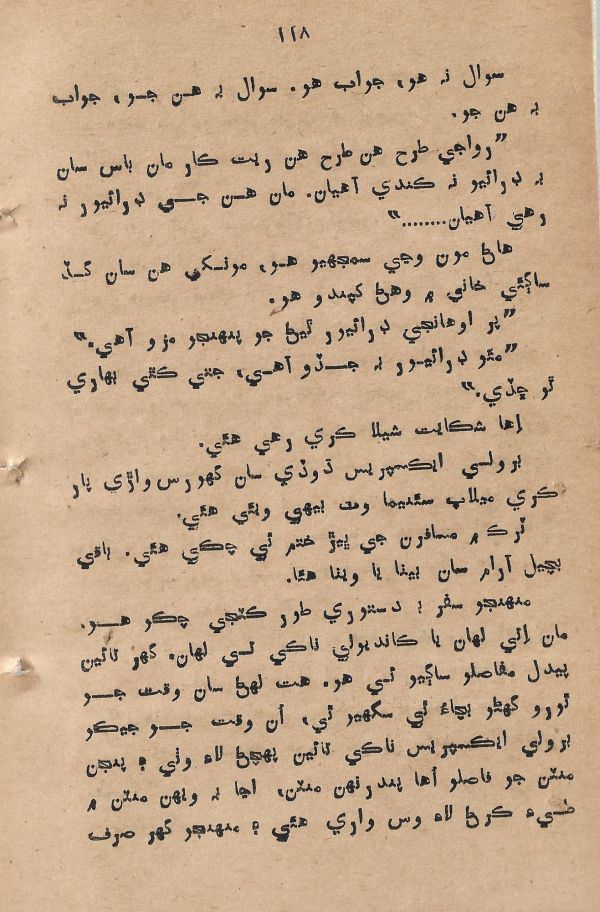 ١٢٨
سوال نہ هو، جواب هو. سوال بہ هن جو، جواب
بہ هن جو.
”رواجي طرح هن طرح هن ريت ڪار مان باس سان
بہ ڊرائيو نہ ڪندي آهيان. مان هن جي ڊرائيور نہ
رهي آهيان........“
هاڻ مون وڃي سمجهيو هو، مونکي هن سان گڏ
ساڳئي خاني ۾ وهڻ کپندو هو.
”پر اوهانجي ڊرائيور ٿيڻ جو پنهنجو مزو آهي.“
”مئو ڊرائيور بہ جڏو آهي، جتي ڪٿي بهاري
ٿو ڇڏي.“
اها شڪايت شيلا ڪري رهي هئي.
برولي ايڪسپريس ڊوڙي سان گهورس واڙي پار
ڪري ميلاپ سئنيما وٽ بيهي ويئي هئي.
ٽرڪ ۾ مسافرن جي پيڙ ختم ٿي چڪي هئي. باقي
بچيل آرام سان بيٺا يا ويٺا هئا.
منهنجو سفر بہ دستوري طور ڪٽجي چڪو هو.
مان اتي لهان يا کانديولي ناڪي تي لهان. گهر تائين
پيدل مفاصلو ساڳيو ئي هو. هت لهڻ سان وقت جو
ٿورو گهڻو بچاءُ ٿي سگهيو ٿي، اُن وقت جو جيڪو
برولي ايڪسپريس ناڪي تائين پهچڻ لاءِ وٺي ۽ پنجن
منٽن جو فاصلو اُها پندرنهن منٽن، اڃا بہ ويهن منٽن ۾
طيءِ ڪرڻ لاءِ وس واري هئي ۽ منهنجو گهر صرف